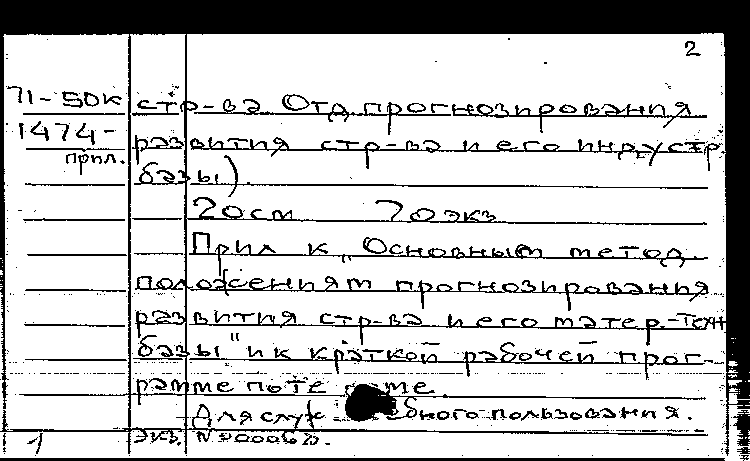 2
71-50к стр-ва Отд. прогнозирования
1474- развития стр-ва и его индустр.
прил. базы).
20см 70экз
Прил к „Основным метод.
положениям прогнозирования
развития стр-ва и его матер.-техн
базы" и к краткой рабочей прог-
рамме по те ме.
Для служебного пользования.
1 Экз. №